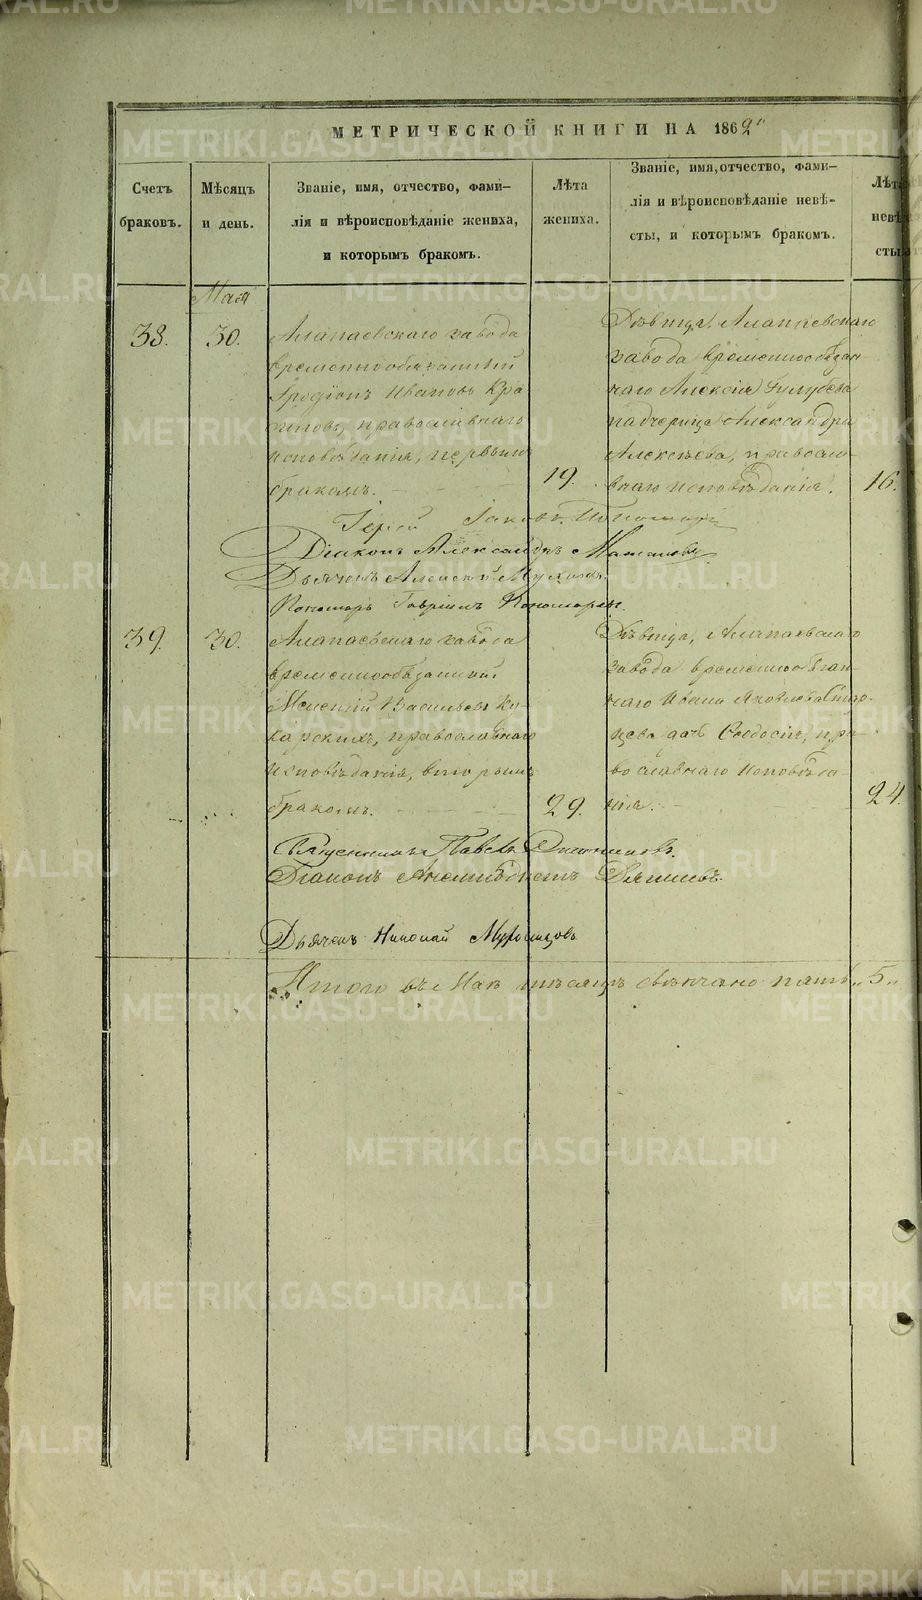 МЕТРИЧЕСКОЙ КНИГИ НА 1862"
Счетъ
браковъ.
Мѣсяцъ
и день.
Званіе, имя, отчество, фами-
лія и вѣроисповѣданіе жениха,
и которымъ бракомъ.
Лѣта
жениха.
Званіе, имя, отчество, фами-
лія и вѣроисповѣданіе невѣ-
сты, и которымъ бракомъ.
Лѣта
невѣ
сты.
Мая
38. 30.
Алапаевскаго завода
временнообязанный
Иродіонъ Ивановъ
православнаго
исповѣданія, первымъ
бракомъ.
19.
Дѣвица, Алапаевскаго
завода временнообязан-
наго Алексія Голубева
падчерица Александра
Алексѣева, православ-
внаго исповѣданія.
16.
Іерей Іаковъ
Діаконъ Александръ
Дьячекъ Алексѣй
Пономарь Гавріилъ Пономаревъ.
39. 30.
Алапаевскаго завода
временнообязанный
Васильевъ Ку-
карскихъ, православнаго
исповѣданія, вторымъ
бракомъ.
29.
Дѣвица, Алапаевскаго
завода временнообязан-
наго Ивана Яковлева Стар-
цева дочь Ѳеодосія, пра-
вославнаго исповѣда-
нія.
24.
Священникъ Павелъ
Діаконъ
Дьячекъ Николай
Итого въ Маѣ мѣсяцѣ свѣнчано пять „5„
METRIKI.GASO-URAL.RU